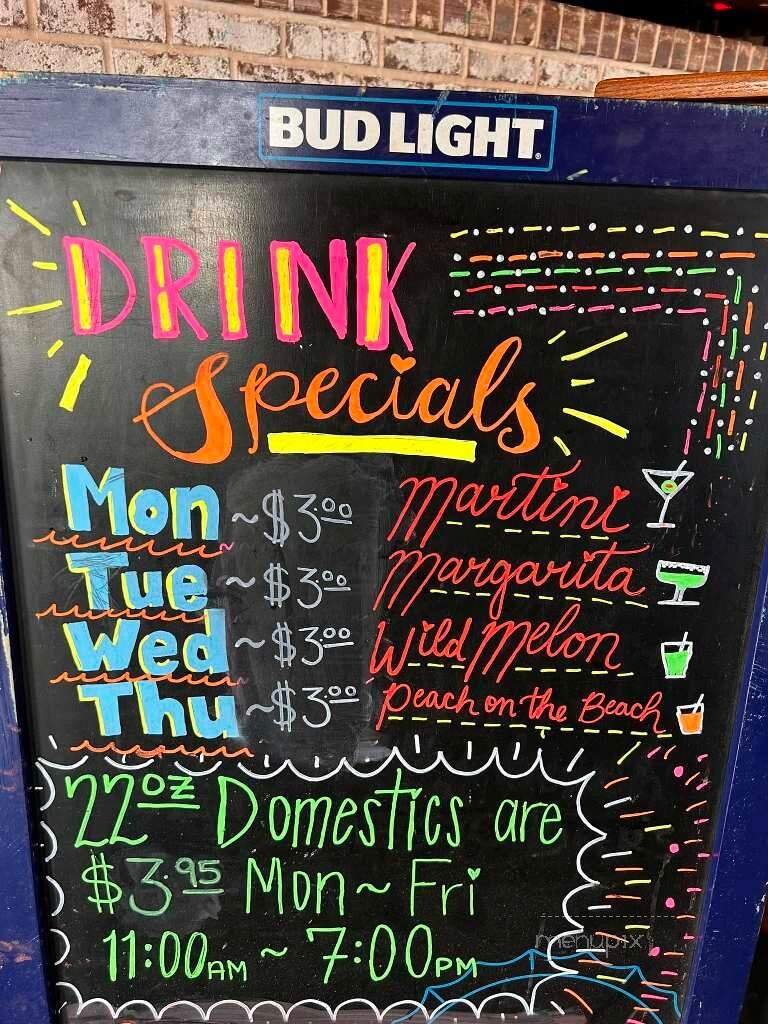 BUD LIGHT
DRINK
Specials
Mon ~ $3.00 Martini
Tue ~ $3.00 Margarita
Wed ~ $3.00 Wild Melon
Thu ~ $3.00 Peach on the Beach
22oz Domestics are
$3.95 Mon ~ Fri
11:00AM ~ 7:00PM
menupix